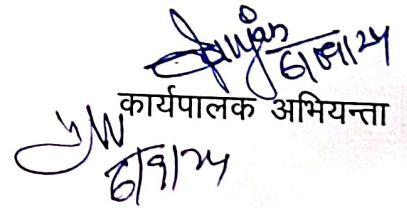 6/09/24
कार्यपालक अभियन्ता
6/9/24